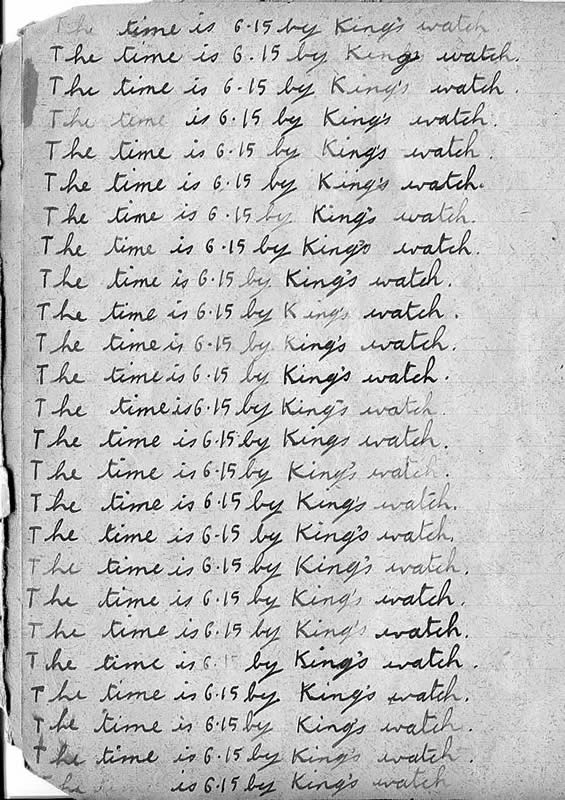 The time is 6·15 by King's watch
The time is 6.15 by Kings watch.
The time is 6·15 by King's watch.
The time is 6·15 by King's watch.
The time is 6·15 by King's watch.
The time is 6·15 by King's watch.
The time is 6·15 by King's watch.
The time is 6·15 by King's watch.
The time is 6·15 by King's watch.
The time is 6·15 by King's watch.
The time is 6·15 by King's watch.
The time is 6·15 by King's watch.
The time is 6·15 by King's watch
The time is 6·15 by Kings watch.
The time is 6·15 by King's watch.
The time is 6·15 by King's watch.
The time is 6·15 by King's watch.
The time is 6·15 by King's watch.
The time is 6·15 by King's watch.
The time is 6·15 by King's watch.
The time is 6·15 by King's watch.
The time is 6·15 by King's watch.
The time is 6·15 by King's watch.
The time is 6·15 by King's watch.
The time is 6·15 by King's watch